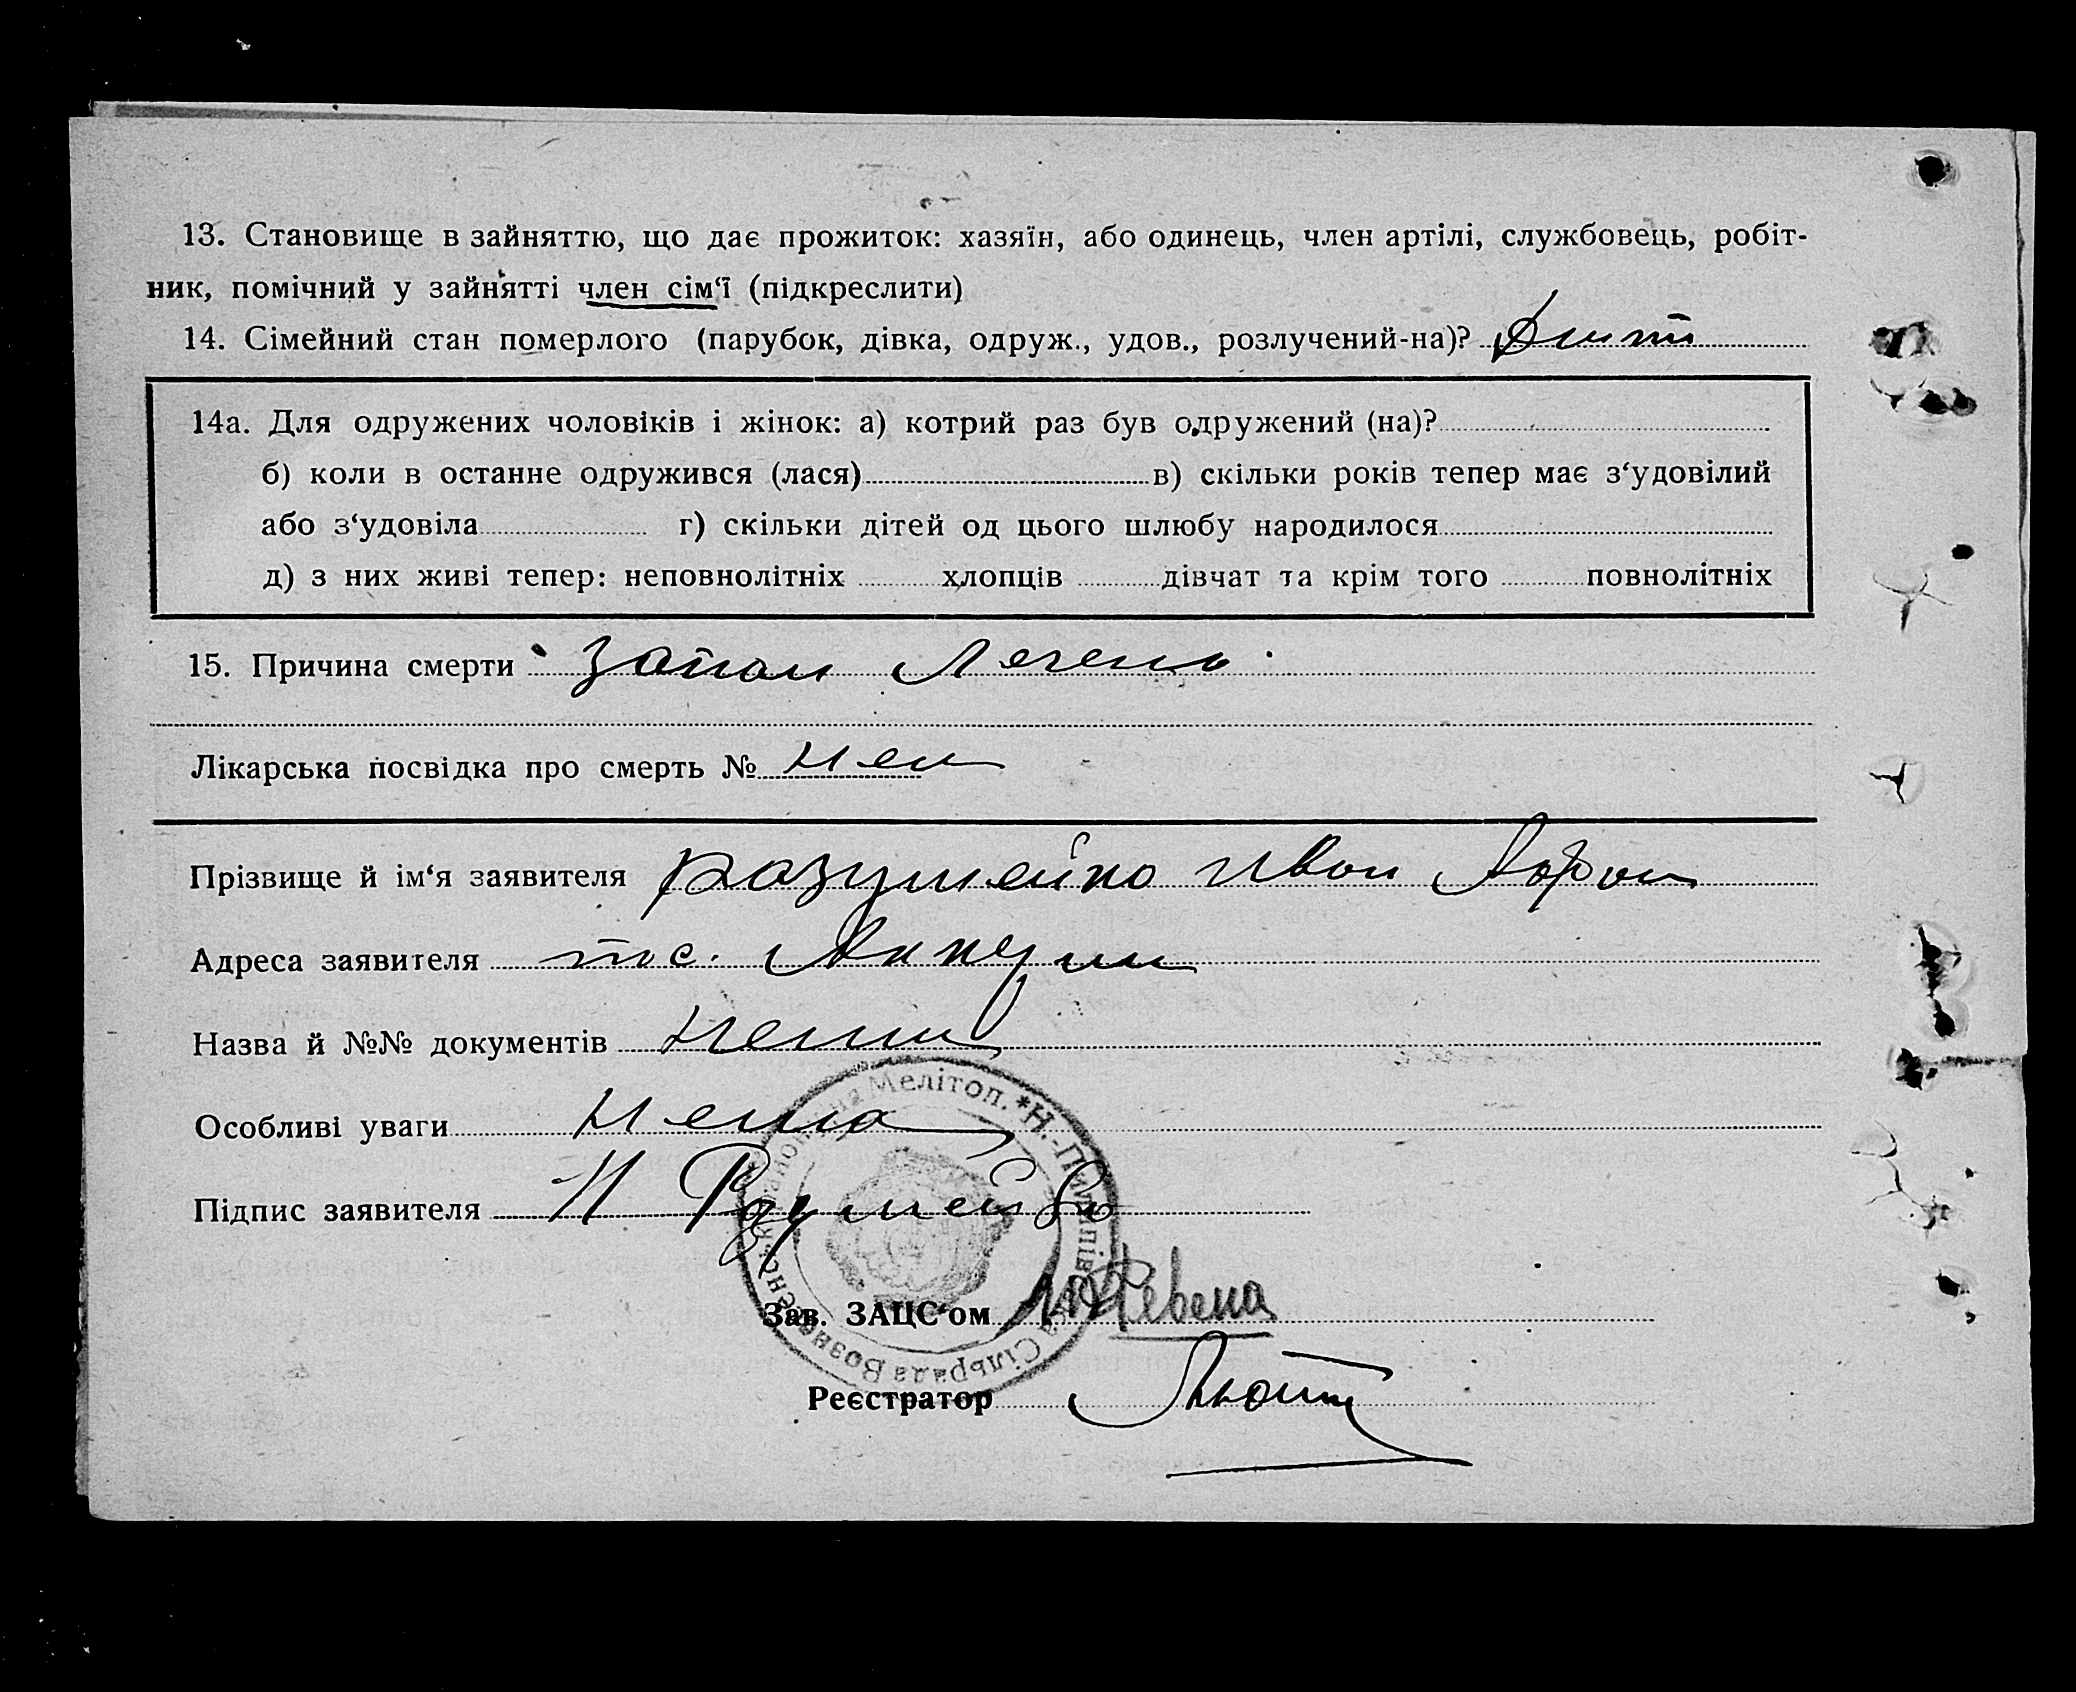 13. Становище в зайняттю, що дає прожиток: хазяїн, або одинець, член артілі, службовець, робіт-
ник, помічний у зайнятті член сім‘ї (підкреслити)
14. Сімейний стан померлого (парубок, дівка, одруж., удов., розлучений-на)? Дити
14а. Для одружених чоловіків і жінок: а) котрий раз був одружений (на)?
б) коли в останне одружився (лася) в) скільки років тепер має з‘удовілий
або з‘удовіла г) скільки дітей од цього шлюбу народилося
д) з них живі тепер: неповнолітніх хлопців дівчат та крім того повнолітніх
15. Причина смерти Запал Легень
Лікарська посвідка про смерть № нем
Прізвище й ім‘я заявителя Розумейко Иван
Адреса заявителя пос.
Назва й №№ документів нема
Особливі уваги нема
Підпис заявителя И Розумейко
Зав. ЗАЦС‘ом Ревена
Реєстратор
Мелітоп. * Н.-Пилипівська Сільрада Вознесенс